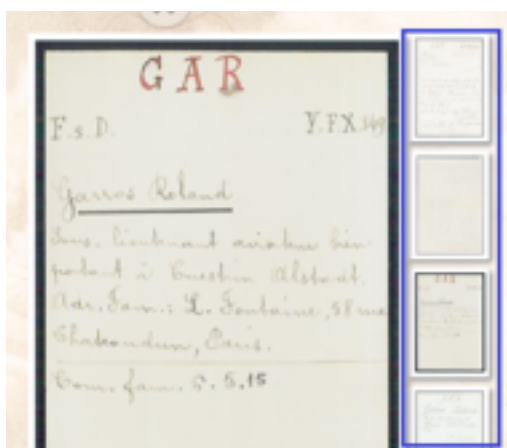 GAR
F.s.D. Y.FX.149
Garros Roland
Sous. lieutenant aviateur bien
portant à Cuestrin Alstadt.
Adr. Fam.: L. Fontaine, 58 rue
Chateaudun, Paris.
Com. fam. 5.5.15